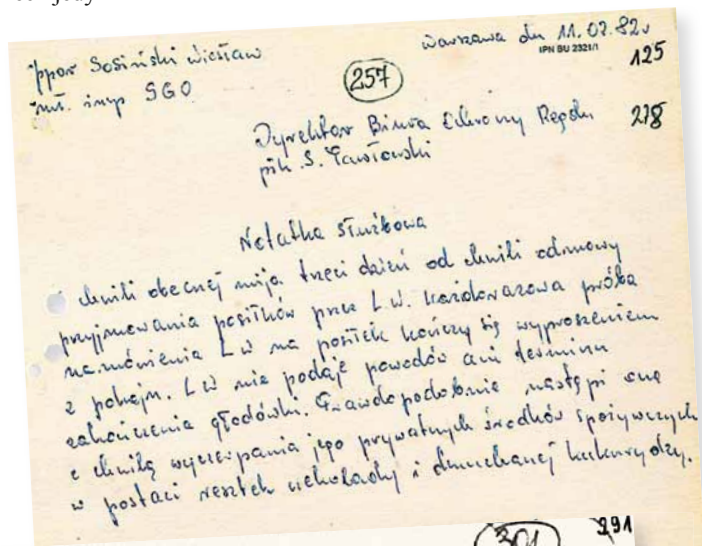 ppor Sosiński Wiesław
mł. insp SGO
Warszawa dn 11.02.82r
IPN BU 2321/1
125
257
Dyrektor Biura Ochrony Rządu
płk. S. Pawłowski
218
Notatka służbowa
z chwili obecnej mija trzeci dzień od chwili odmowy
przyjmowania posiłków przez L.W. każdorazowa próba
namówienia L W na posiłek kończy się wyproszeniem
z pokoju. L W nie podaje powodów ani terminu
zakończenia głodówki. Prawdopodobnie nastąpi one
z chwilą wyczerpania jego prywatnych środków spożywczych
w postaci resztek czekolady i dmuchanej kukurydzy.
301
291